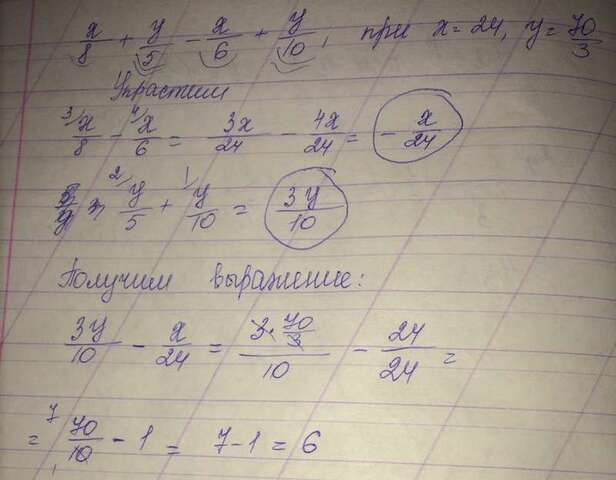 x/8 + y/5 - x/6 + y/10, при x = 24, y = 70/3
Упростим
3/ x/8 - 4/ x/6 = 3x/24 - 4x/24 = - x/24
2/ y/5 + 1/ y/10 = 3y/10
Получим выражение:
3y/10 - x/24 = 3·70/3 / 10 - 24/24 =
= 7 70/10 - 1 = 7-1 = 6